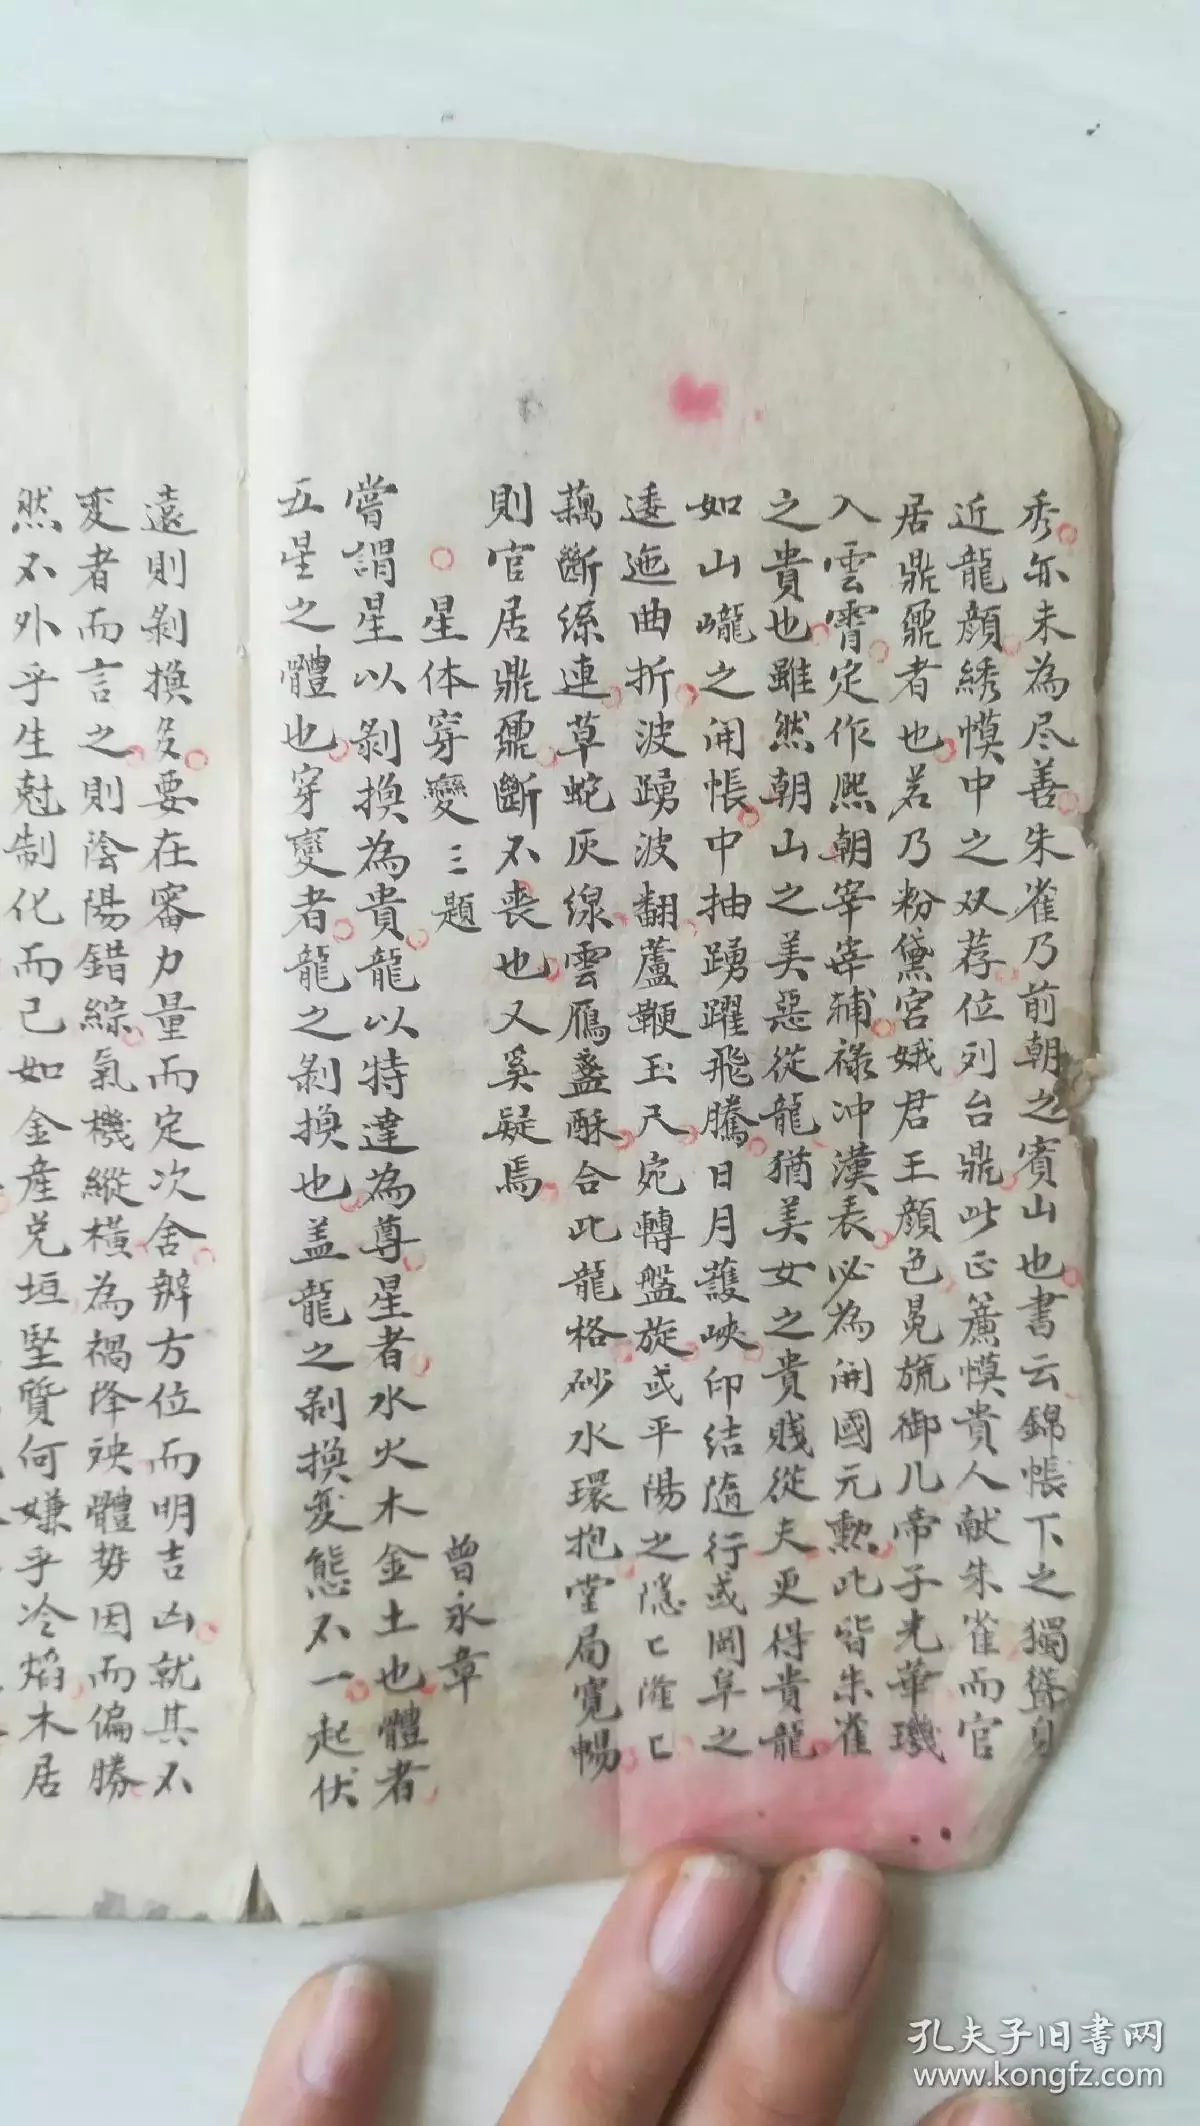 秀亦未為尽善朱雀乃前朝之賓山也書云錦帳下之獨聳身
近龍顏綉幙中之双荐位列台鼎此正簾幙貴人献朱雀而官
居鼎鼐者也若乃粉黛宮娥君王顏色冕旒御儿帝子光華璣
入雲霄定作熙朝宰宰輔祿冲漢表必為開國元勳此皆朱雀
之貴也雖然朝山之美惡從龍猶美女之貴賤從夫更得貴龍
如山巃之開帳中抽踴躍飛騰日月護峽印結隨行或岡阜之
逶迤曲折波踴波翻蘆鞭玉尺宛轉盤旋或平陽之隱匕隆匕
藕斷絲連草蛇灰線雲雁盞酥合此龍格砂水環抱堂局寬暢
則官居鼎鼐斷不喪也又奚疑焉
星体穿變三題 曾永章
嘗謂星以剝換為貴龍以特達為尊星者水火木金土也體者
五星之體也穿變者龍之剝換也盖龍之剝換変態不一起伏
遠則剝換多要在審力量而定次舍辨方位而明吉凶就其不
変者而言之則陰陽錯綜氣機縱橫為禍降殃體势因而偏勝
然不外乎生尅制化而已如金産兌垣堅質何嫌乎冷焰木居
孔夫子旧书网
www.kongfz.com